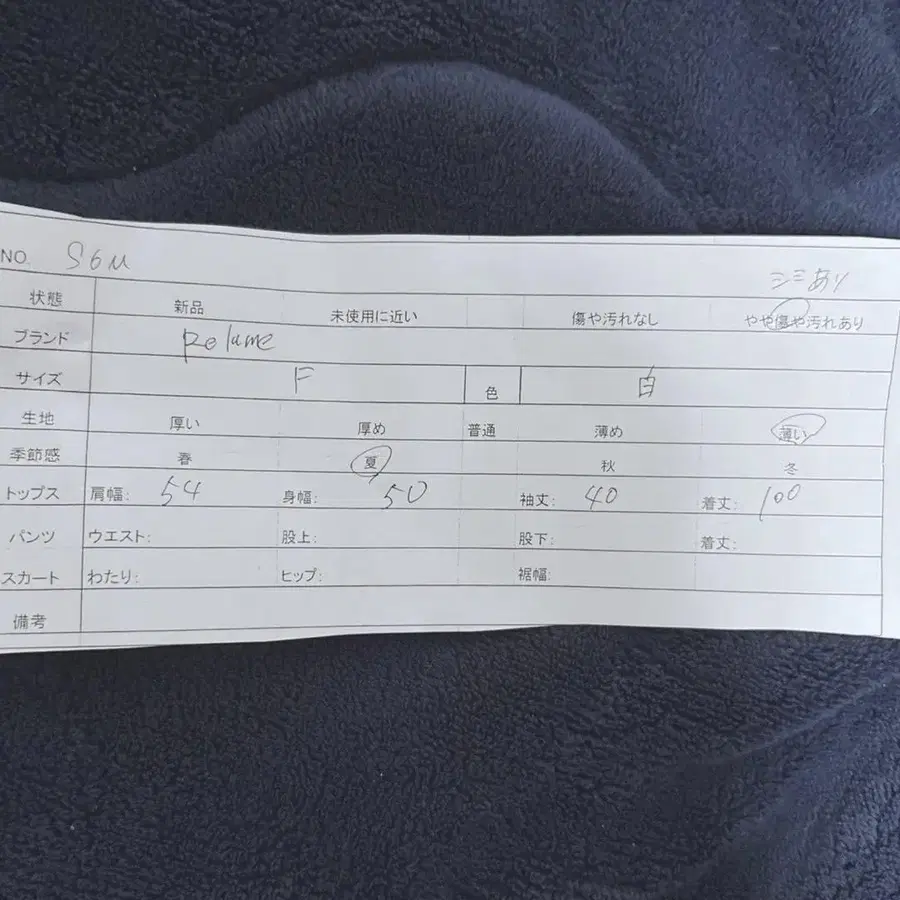 NO. S6M シミあり
状態 新品 未使用に近い 傷や汚れなし やや傷や汚れあり
ブランド Relume
サイズ F 色 白
生地 厚い 厚め 普通 薄め 薄い
季節感 春 夏 秋 冬
トップス 肩幅: 54 身幅: 50 袖丈: 40 着丈: 100
パンツ ウエスト: 股上: 股下: 着丈:
スカート わたり: ヒップ: 裾幅:
備考